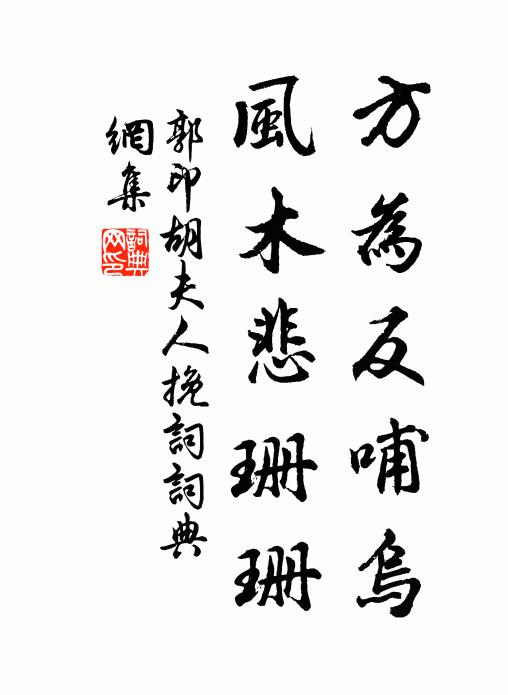 方為反哺烏
風木悲珊珊
郭印胡夫人挽詞詞典
網集
詞典
网印